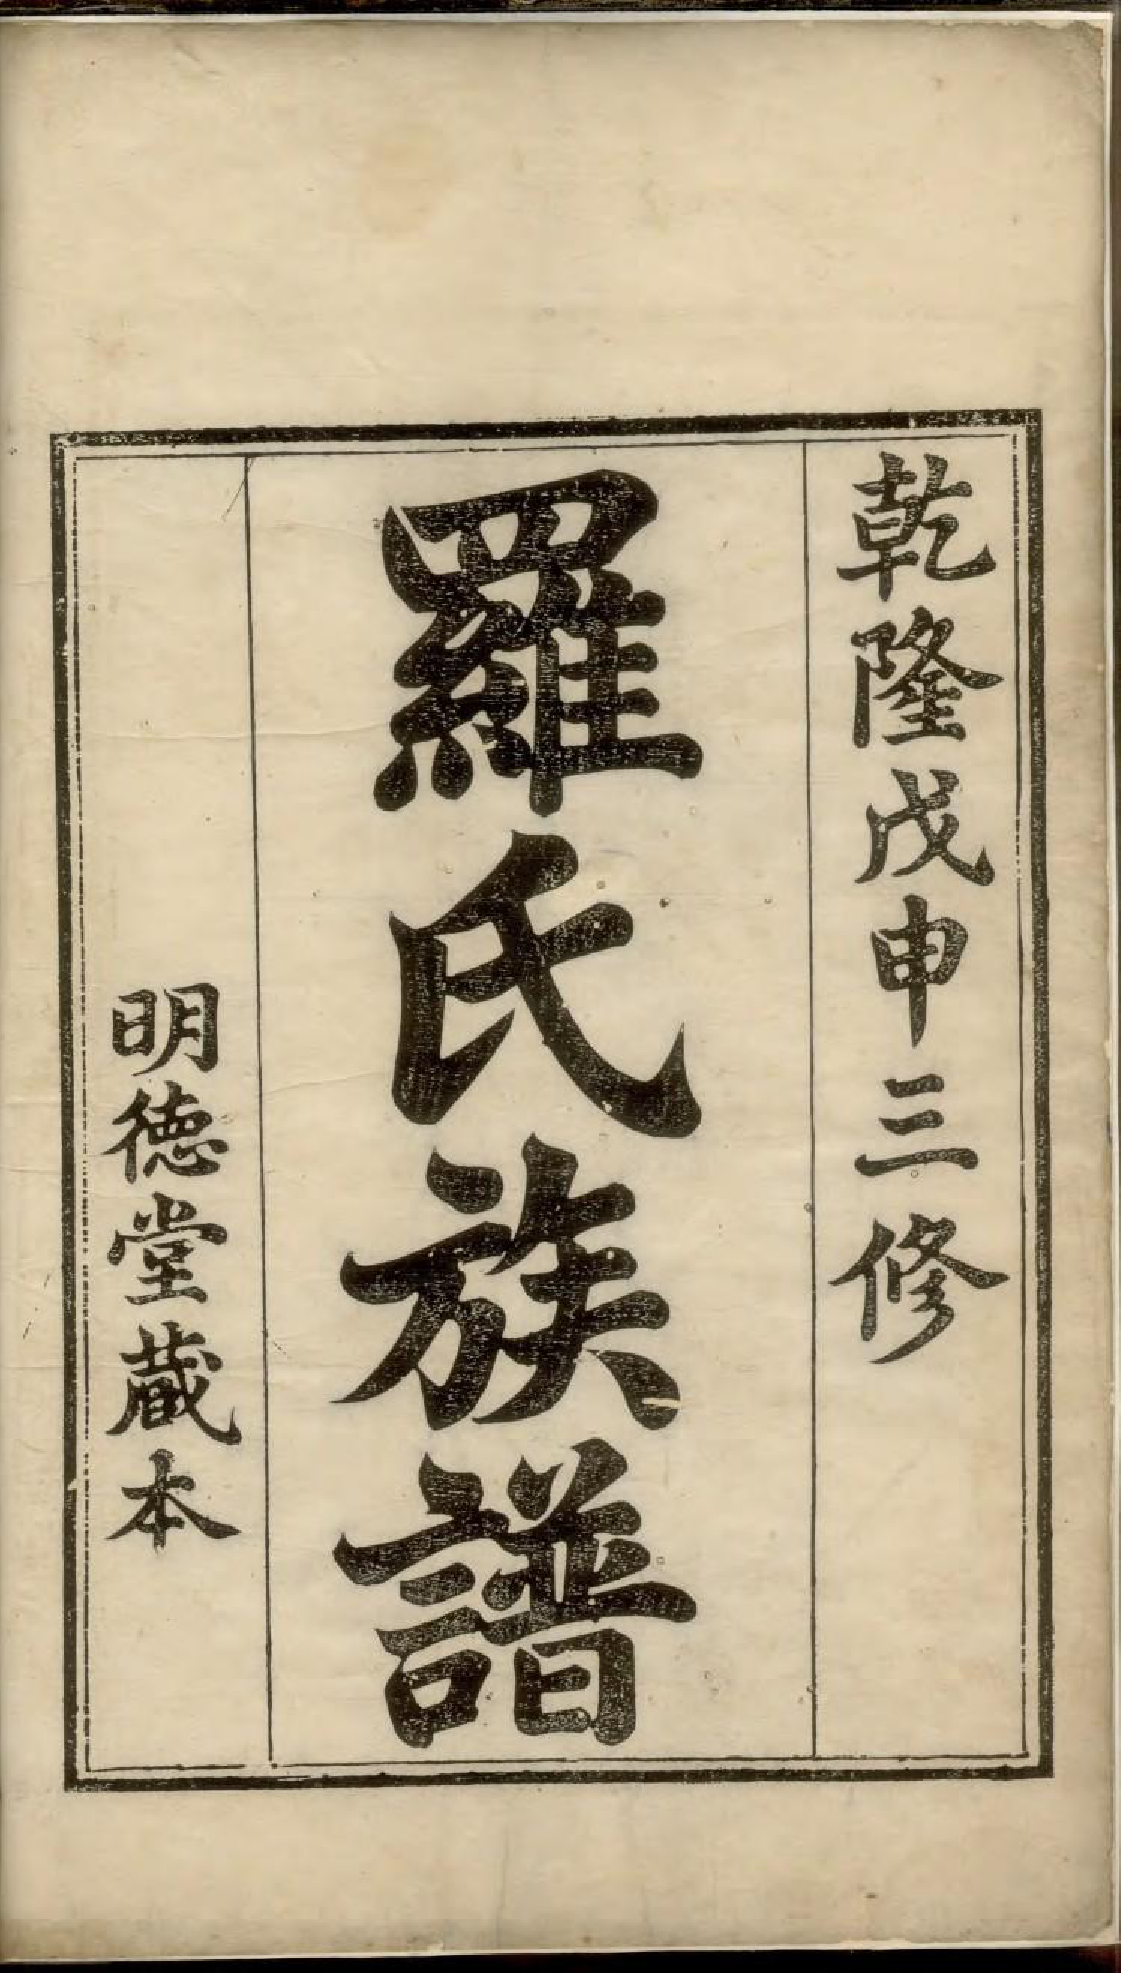 乾隆戊申三修
羅氏族譜
明德堂藏本